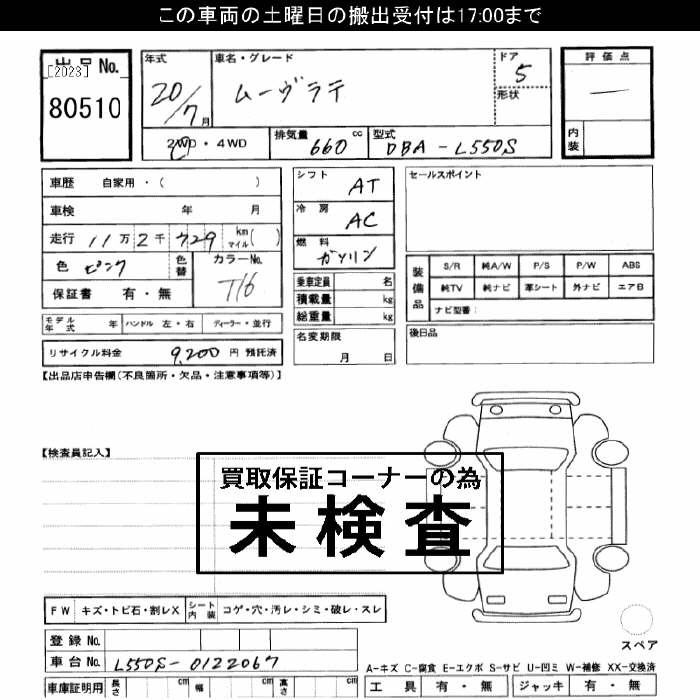 この車両の土曜日の搬出受付は17:00まで
出品No.
[2023]
80510
年式
20/7月
車名・グレード
ムーヴラテ
ドア
5
形状
評価点
内装
2WD・4WD
排気量 660 cc
型式 DBA-L550S
車歴 自家用・( )
車検 年 月
走行 11万2千729 km マイル( )
色 ピンク
色替
カラーNo. T16
保証書 有・無
シフト AT
冷房 AC
燃料 ガソリン
乗車定員 名
積載量 kg
総重量 kg
セールスポイント
装備品
S/R 純A/W P/S P/W ABS
純TV 純ナビ 革シート 外ナビ エアB
ナビ型番:
モデル年式 年 ハンドル 左・右 ディーラー・並行
名変期限 月 日
後日品
リサイクル料金 9,200 円 預託済
【出品店申告欄(不良箇所・欠品・注意事項等)】
【検査員記入】
買取保証コーナーの為
未検査
FW キズ・トビ石・割レX シート内装 コゲ・穴・汚レ・シミ・破レ・スレ
登録No.
車台No. L550S-0122067
車庫証明用 長さ cm 幅 cm 高さ cm
スペア
A-キズ C-腐食 E-エクボ S-サビ U-凹ミ W-補修 XX-交換済
工具 有・無 ジャッキ 有・無